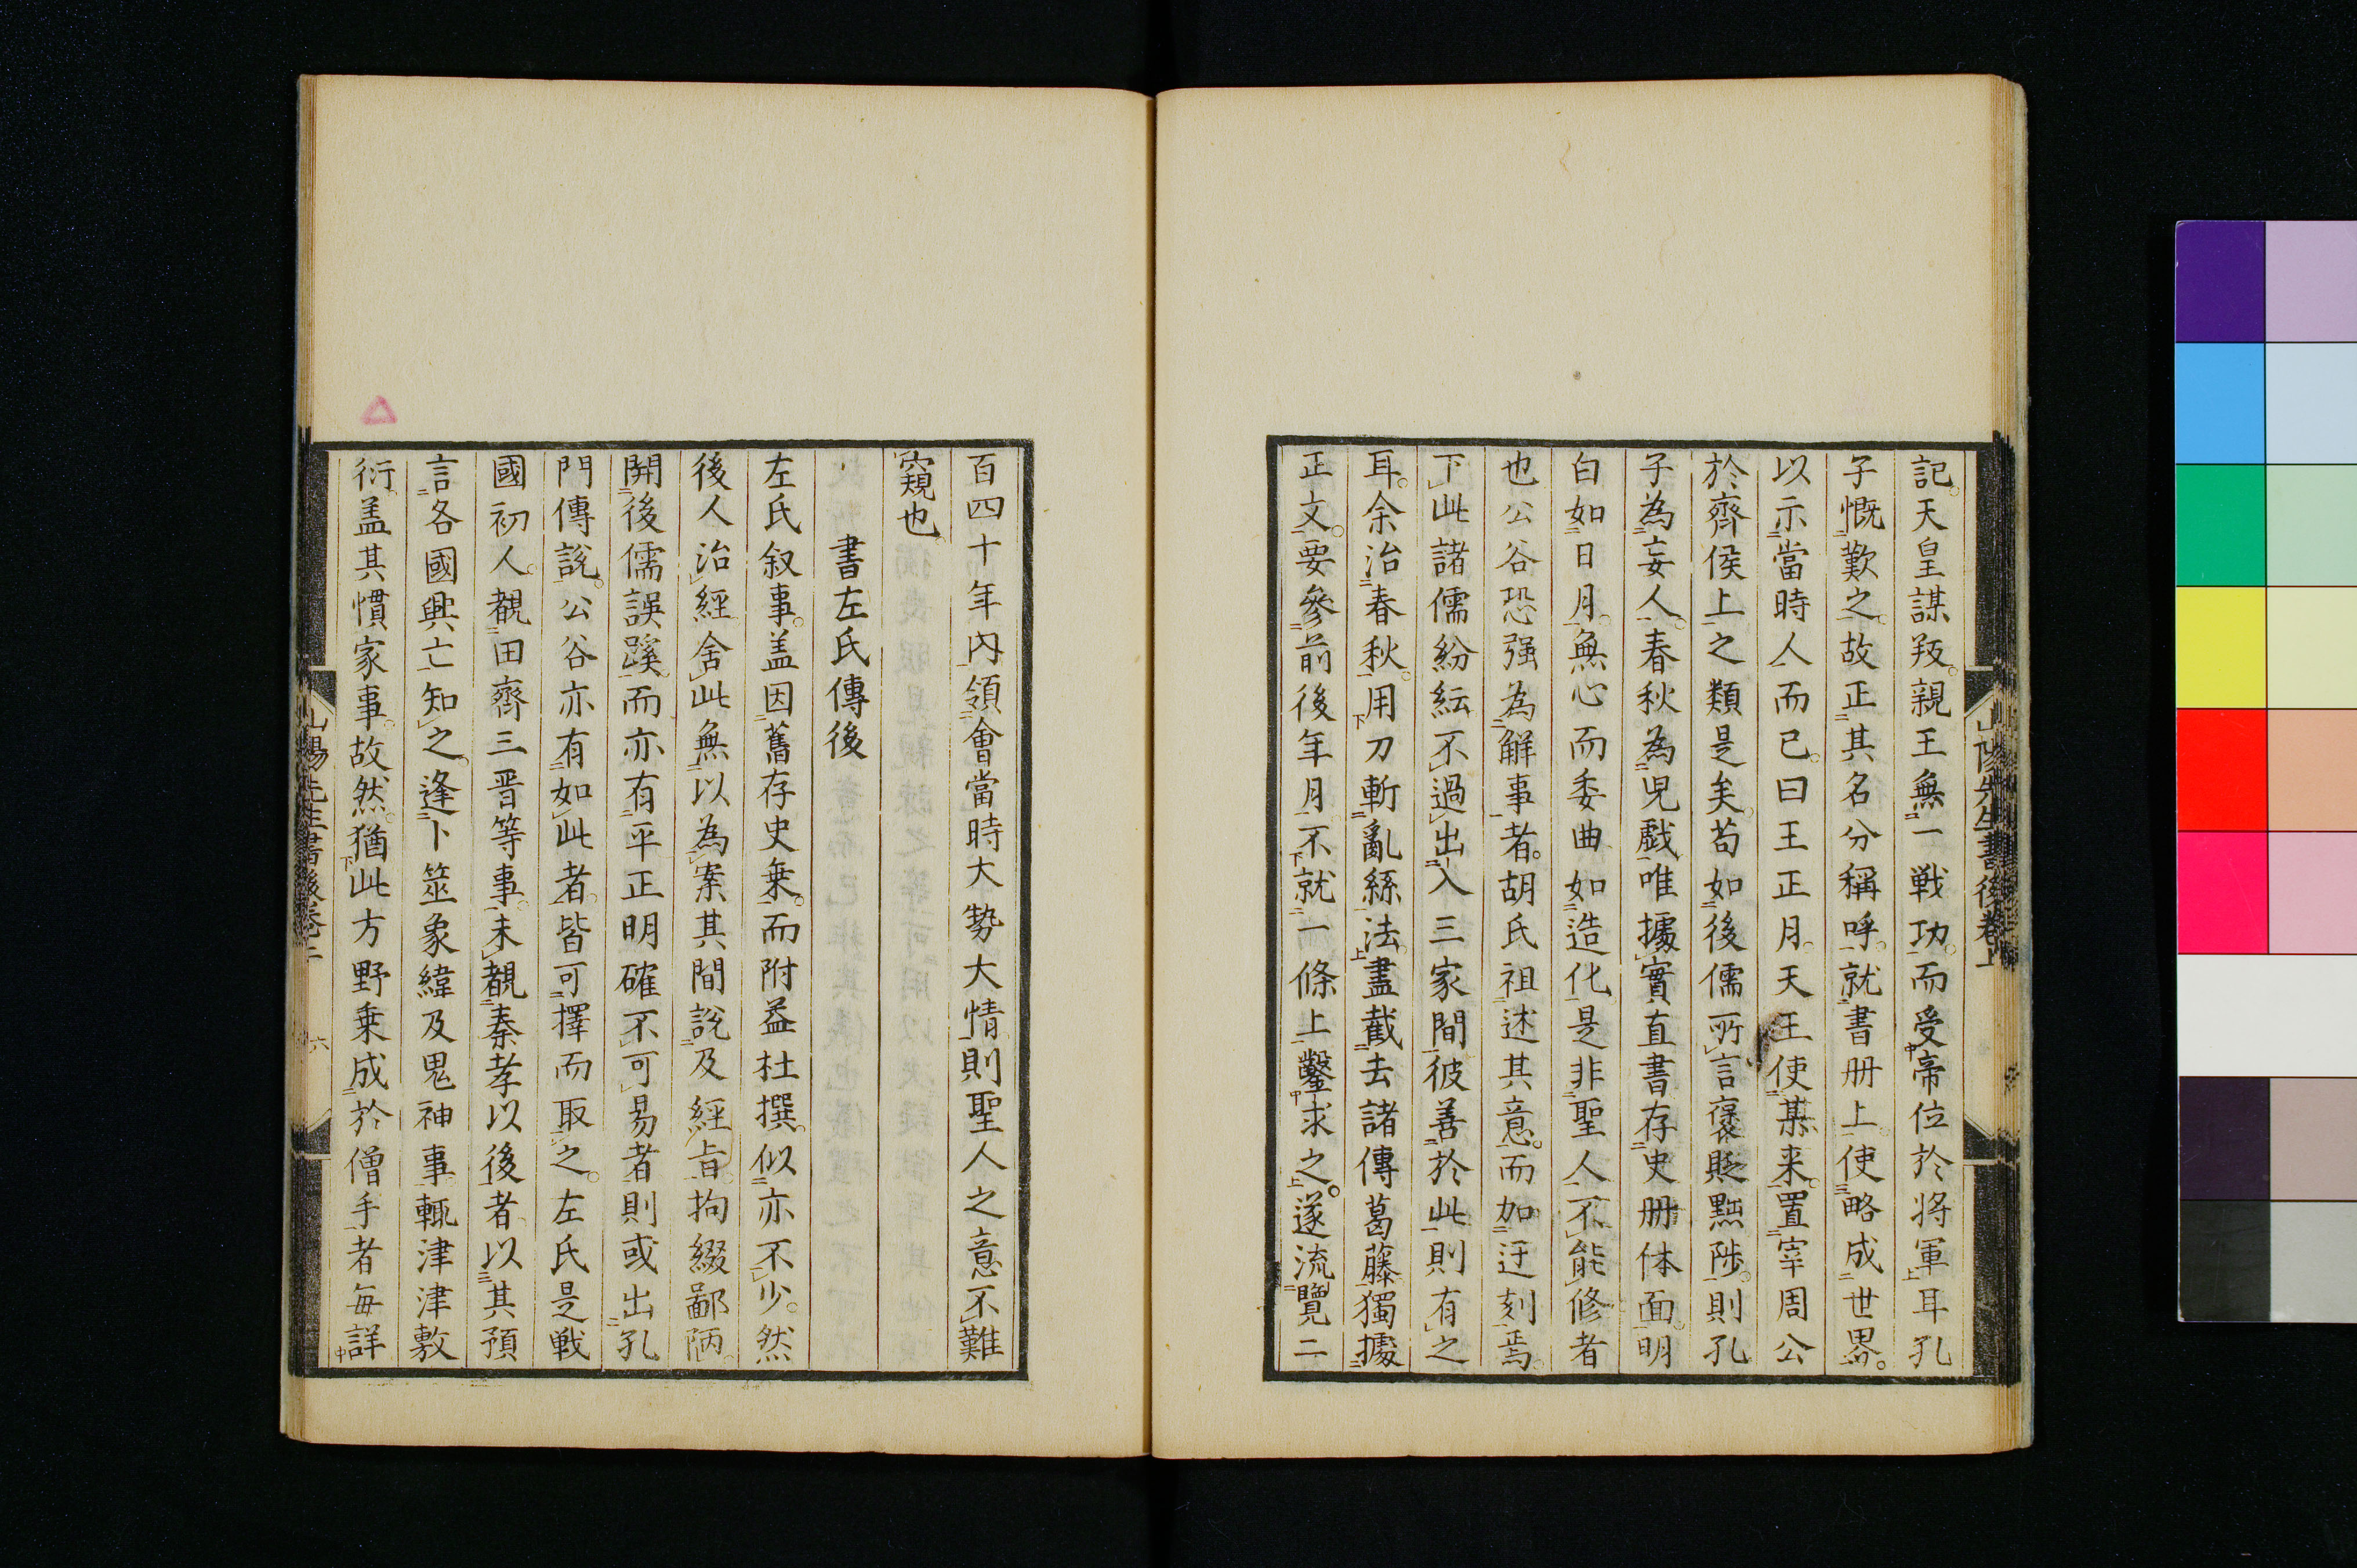 記天皇謀叛親王無一戦功而受帝位於将軍耳孔
子慨歎之故正其名分稱呼就書册上使略成世界
以示當時人而已曰王正月天王使某来置宰周公
於齊侯上之類是矣苟如後儒所言褒貶黜陟則孔
子為妄人春秋為児戯唯據實直書存史册体面明
白如日月無心而委曲如造化是非聖人不能修者
也公谷恐强為解事者胡氏祖述其意而加迂刻焉
下此諸儒紛紜不過出入三家間彼善於此則有之
耳余治春秋用刀斬亂絲法盡截去諸傳葛藤獨據
正文要參前後年月不就一條上鑿求之遂流覽二
山陽先生書後卷上
百四十年内領會當時大勢大情則聖人之意不難
窺也
書左氏傳後
左氏叙事盖因舊存史乗而附益杜撰似亦不少然
後人治經舍此無以為案其間説及經旨拘綴鄙陋
開後儒誤蹊而亦有平正明確不可易者則或出孔
門傳説公谷亦有如此者皆可擇而取之左氏是戦
國初人覩田齊三晋等事未覩秦孝以後者以其預
言各國興亡知之逢卜筮象緯及鬼神事輒津津敷
衍盖其慣家事故然猶此方野乗成於僧手者毎詳
山陽先生書後卷上
六